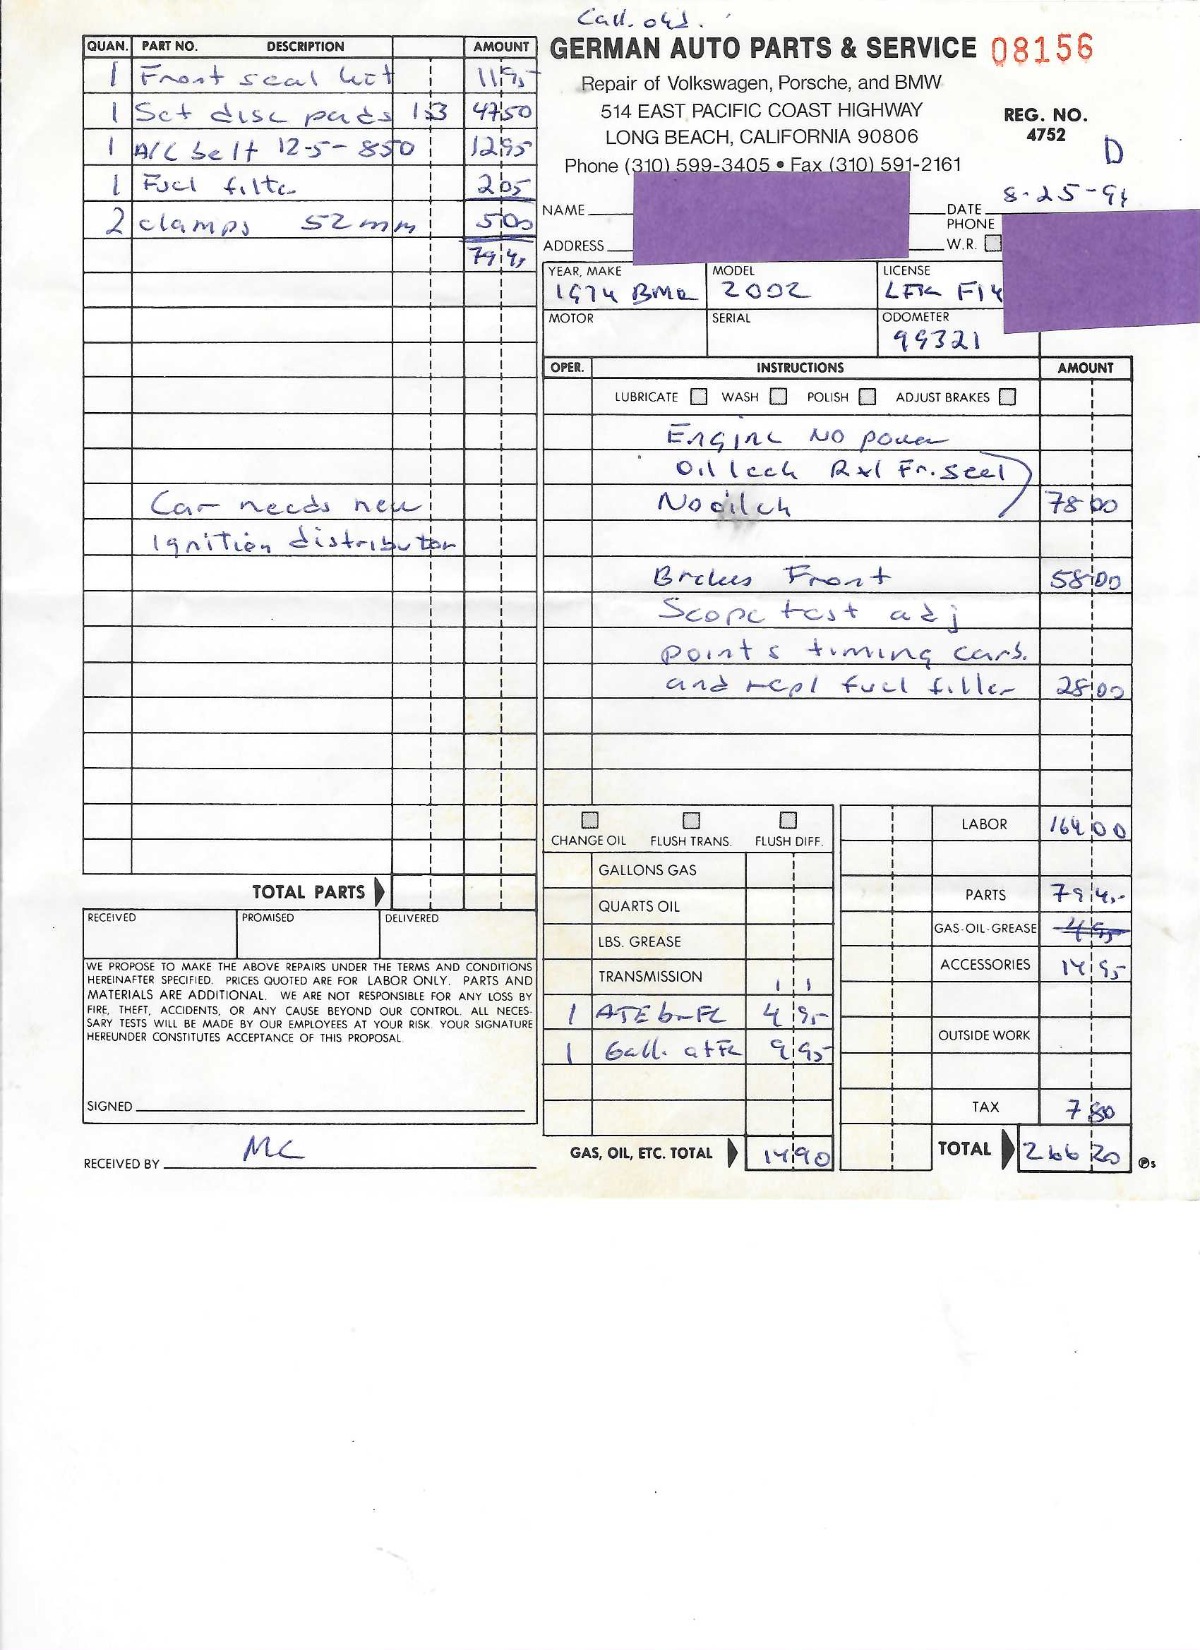 Call. old.
GERMAN AUTO PARTS & SERVICE 08156
Repair of Volkswagen, Porsche, and BMW
514 EAST PACIFIC COAST HIGHWAY
LONG BEACH, CALIFORNIA 90806
Phone (310) 599-3405 • Fax (310) 591-2161
REG. NO.
4752
D
QUAN. PART NO. DESCRIPTION AMOUNT
1 Front seal kit 1195
1 Set disc pads 153 4750
1 A/C belt 12-5-850 1295
1 Fuel filte 205
2 clamps 52mm 500
7945
Car needs new
Ignition distributor
TOTAL PARTS
NAME
ADDRESS
DATE 8-25-94
PHONE
W.R.
YEAR, MAKE MODEL LICENSE
1974 BMW 2002 F14
MOTOR SERIAL ODOMETER
99321
OPER. INSTRUCTIONS AMOUNT
LUBRICATE WASH POLISH ADJUST BRAKES
Engine No power
Oil leek Rxl Fr. seel
No 7800
Brakes Front 5800
Scope test adj
points timing carb.
and repl fuel filter 2800
CHANGE OIL FLUSH TRANS. FLUSH DIFF.
GALLONS GAS
QUARTS OIL
LBS. GREASE
TRANSMISSION
1 ATE br FL 495
1 Gall. at FL 995
GAS, OIL, ETC. TOTAL 1490
LABOR 16400
PARTS 7945
GAS-OIL-GREASE 495
ACCESSORIES 1495
OUTSIDE WORK
TAX 780
TOTAL 26620
RECEIVED PROMISED DELIVERED
WE PROPOSE TO MAKE THE ABOVE REPAIRS UNDER THE TERMS AND CONDITIONS
HEREINAFTER SPECIFIED. PRICES QUOTED ARE FOR LABOR ONLY. PARTS AND
MATERIALS ARE ADDITIONAL. WE ARE NOT RESPONSIBLE FOR ANY LOSS BY
FIRE, THEFT, ACCIDENTS, OR ANY CAUSE BEYOND OUR CONTROL. ALL NECES-
SARY TESTS WILL BE MADE BY OUR EMPLOYEES AT YOUR RISK. YOUR SIGNATURE
HEREUNDER CONSTITUTES ACCEPTANCE OF THIS PROPOSAL.
SIGNED
RECEIVED BY MC